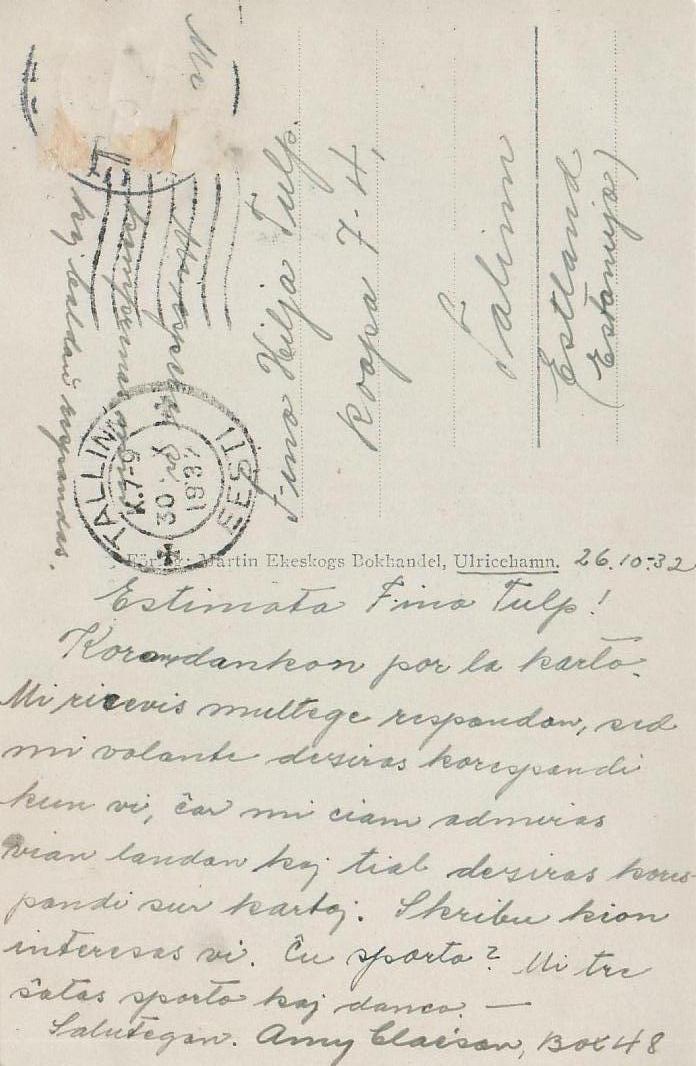 Fino Hilja Tulp.
Koopa 7-4,
Talinn
Estland
(Estonujo)
TALLINN EESTI
K.7-9
30 X
1932
Förlag: Martin Ekeskogs Bokhandel, Ulricehamn.
26.10-32
Estimata Fino Tulp!
Koran dankon por la karto.
Mi ricevis multege respondon, sed
mi volante deziras korespondi
kun vi, ĉar mi ciam admiras
vian landon kaj tial deziras kores-
pondi sur kartoj. Skribu kion
interesas vi. Ĉu sporto? Mi tre
ŝatas sporto kaj danco. —
Salutegon. Amy Claéson, Box 48
Mi
kaj baldaŭ respondas.